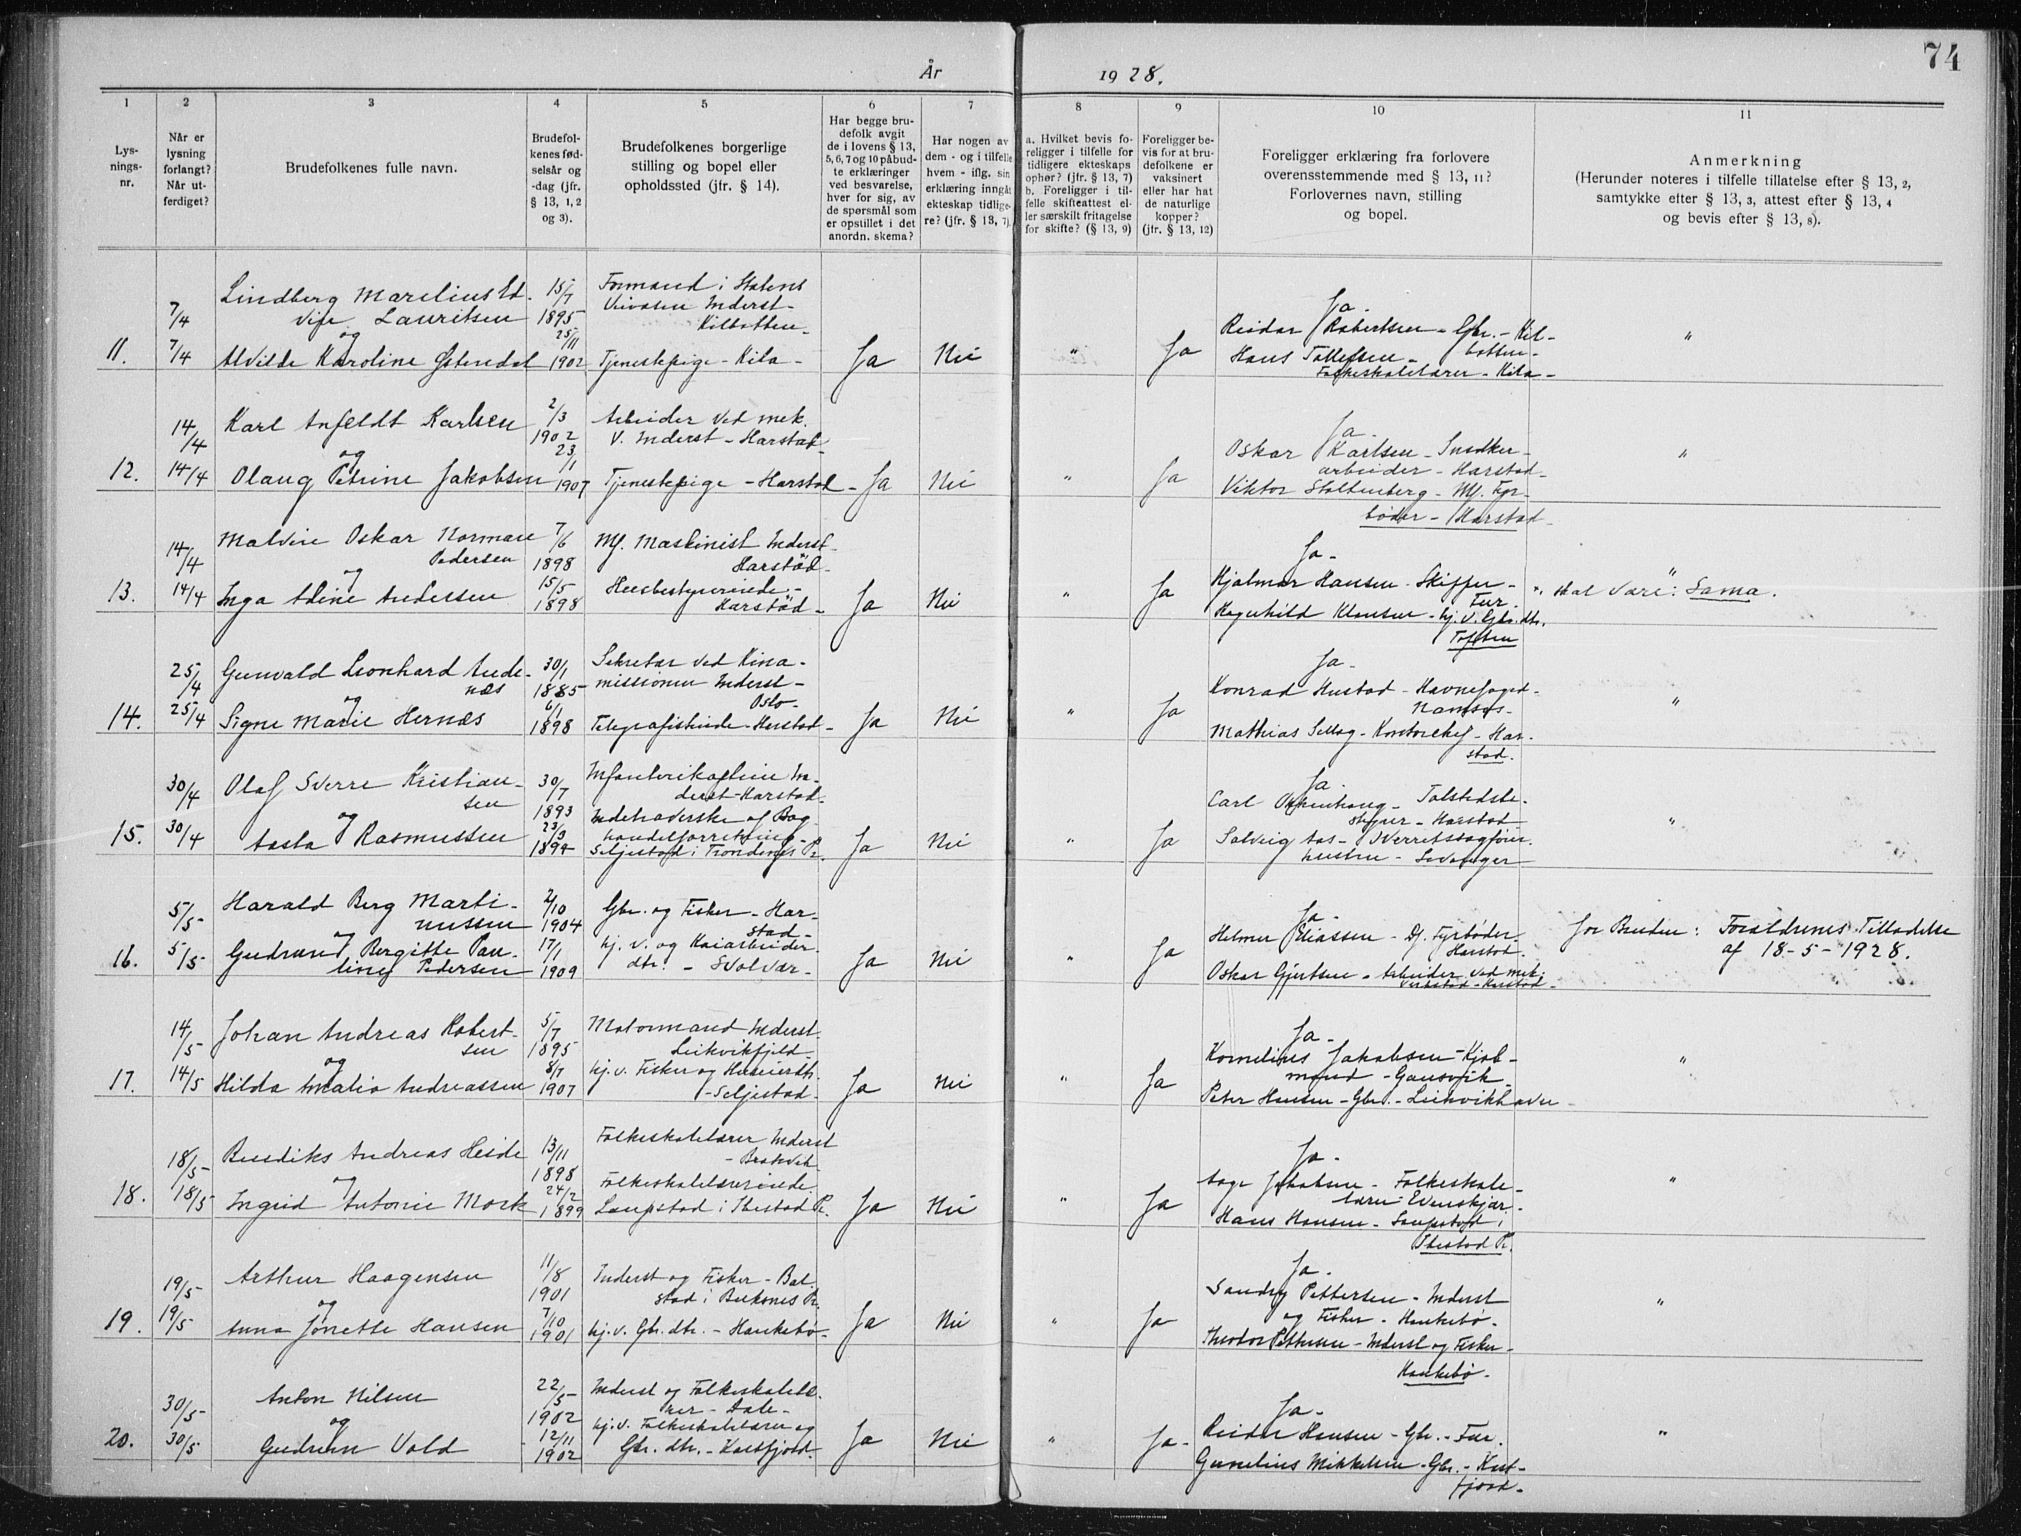 74
År 1928.
1 2 3 4 5 6 7 8 9 10 11
Lysnings-nr.
Når er lysning forlangt? Når utferdiget?
Brudefolkenes fulle navn.
Brudefolkenes fødselsår og -dag (jfr. § 13, 1, 2 og 3).
Brudefolkenes borgerlige stilling og bopel eller opholdssted (jfr. § 14).
Har begge brudefolk avgit de i lovens § 13, 5, 6, 7 og 10 påbudte erklæringer ved besvarelse, hver for sig, av de spørsmål som er opstillet i det anordn. skema?
Har nogen av dem - og i tilfelle hvem - iflg. sin erklæring inngåt ekteskap tidligere? (jfr. § 13, 7).
a. Hvilket bevis foreligger i tilfelle for tidligere ekteskaps ophør? (jfr. § 13, 7)
b. Foreligger i tilfelle skifteattest eller særskilt fritagelse for skifte? (§ 13, 9)
Foreligger bevis for at brudefolkene er vaksinert eller har hat de naturlige kopper? (jfr. § 13, 12)
Foreligger erklæring fra forlovere overensstemmende med § 13, 11? Forlovernes navn, stilling og bopel.
Anmerkning
(Herunder noteres i tilfelle tillatelse efter § 13, 2, samtykke efter § 13, 3, attest efter § 13, 4 og bevis efter § 13, 8).
Lindberg Marelius Ed-
vin Lauritsen
7/4 15/7 1895
Formand i Statens
Veivæsen Inderst -
Kilbotten -
og
11. 7/4 Alvilde Karoline Østendal 25/11 1902 Tjenestepige - Kila - Ja Nei " Ja
Ja -
Reidar Robertsen - Gbr. - Kil-
botten -
Hans Tollefsen -
Folkeskolelærer - Kila -
"
14/4 Karl Anfeldt Karlsen 2/3 1902 Arbeider ved mek.
V. Inderst - Harstad
og
12. 14/4 Olaug Petrine Jakobsen 23/1 1907 Tjenestepige - Harstad - Ja Nei " Ja
Ja -
Oskar Karlsen - Snedker-
arbeider - Harstad -
Viktor Stoltenberg - Mf. Fyr-
bøder - Harstad -
"
14/4 Malvin Oskar Norman
Pedersen
7/6 1898 Mf. Maskinist Inderst
Harstad -
og
13. 14/4 Inga Adine Andersen 15/5 1898 Husbestyrerinde -
Harstad - Ja Nei " Ja
Ja -
Hjalmar Hansen - Skipper -
Fur.
Ragnhild Klausen - hj. v. Gbr. dtr.
Toften
" skal være: Sama.
25/4 Gunvald Leonhard Aude-
næs
30/1 1885 Sekretær ved Kina-
missionen Inderst -
Oslo -
og
14. 25/4 Signe Marie Hernæs 6/1 1898 Telegrafistinde - Harstad - Ja Nei " Ja
Ja -
Konrad Hustad - Havnefoged -
Namsos -
Mathias Selbog - Kontorchef - Har-
stad.
"
30/4 Olaf Sverre Kristian-
sen
30/7 1893 Infanterikaptein In-
derst - Harstad -
og
15. 30/4 Aasta Rasmussen 23/3 1894 Indehaverske af Bog-
handelforretning -
Seljestad i Trondenes Pr. Ja Nei " Ja
Ja -
Carl - Toldstedsbe-
styrer - Harstad
Solveig Aas - Overretssagfører-
hustru - Levanger
"
5/5 Harald Berg Marti-
nussen
2/10 1904 Gbr. og Fisker - Har-
stad -
og
16. 5/5 Gudrun Bergitte Pau-
line Pedersen
17/1 1909 hj. v. og Kaiarbeider-
dtr. - Svolvær - Ja Nei " Ja
Ja -
Helmer Eliassen - Df. Fyrbøder -
Harstad -
Oskar Gjertsen - Arbeider ved mek.
Verksted - Harstad -
for Bruden: Forældrenes Tilladelse
af 18-5-1928.
14/5 Johan Andreas Robert-
sen
5/7 1895 Motormand Inderst
Leikvikfjeld -
og
17. 14/5 Hilda Amalia Andreassen 8/7 1907 hj. v. Fisker og Huseierdtr.
- Seljestad - Ja Nei " Ja
Ja -
Kornelius Jakobsen - Kjøb-
mand - Gausvik -
Peter Hansen - Gbr. - Leikvikhavn -
"
18/5 Bendiks Andreas Heide 13/11 1898 Folkeskolelærer Inderst
- Brokvik
og
18. 18/5 Ingrid Antonie Mork 24/2 1899 Folkeskolelærerinde
Laupstad i Ibestad Pr. Ja Nei " Ja
Ja -
Aage Jakobsen - Folkeskole-
lærer - Evenskjær -
Hans Hansen - Laupstad i
Ibestad Pr.
"
19/5 Arthur Haagensen 11/8 1901 Inderst og Fisker - Bal-
stad i Buksnes Pr.
og
19. 19/5 Anna Jonette Hansen 7/10 1901 hj. v. Gbr. dtr. - Haukebø - Ja Nei " Ja
Ja -
Sandry Pettersen - Inderst
og Fisker - Haukebø -
Theodor Pettersen - Inderst og Fisker -
Haukebø -
"
30/5 Anton Nilsen 22/5 1902 Inderst og Folkeskolelæ-
rer - Dale -
og
20. 30/5 Gudrun Vold 12/11 1902 hj. v. Folkeskolelærer og
Gbr. dtr. - Kasfjord - Ja Nei " Ja -
Ja -
Reidar Hansen - Gbr. - Fur.
Gunelius Mikkelsen - Gbr. - Kas-
fjord -
"